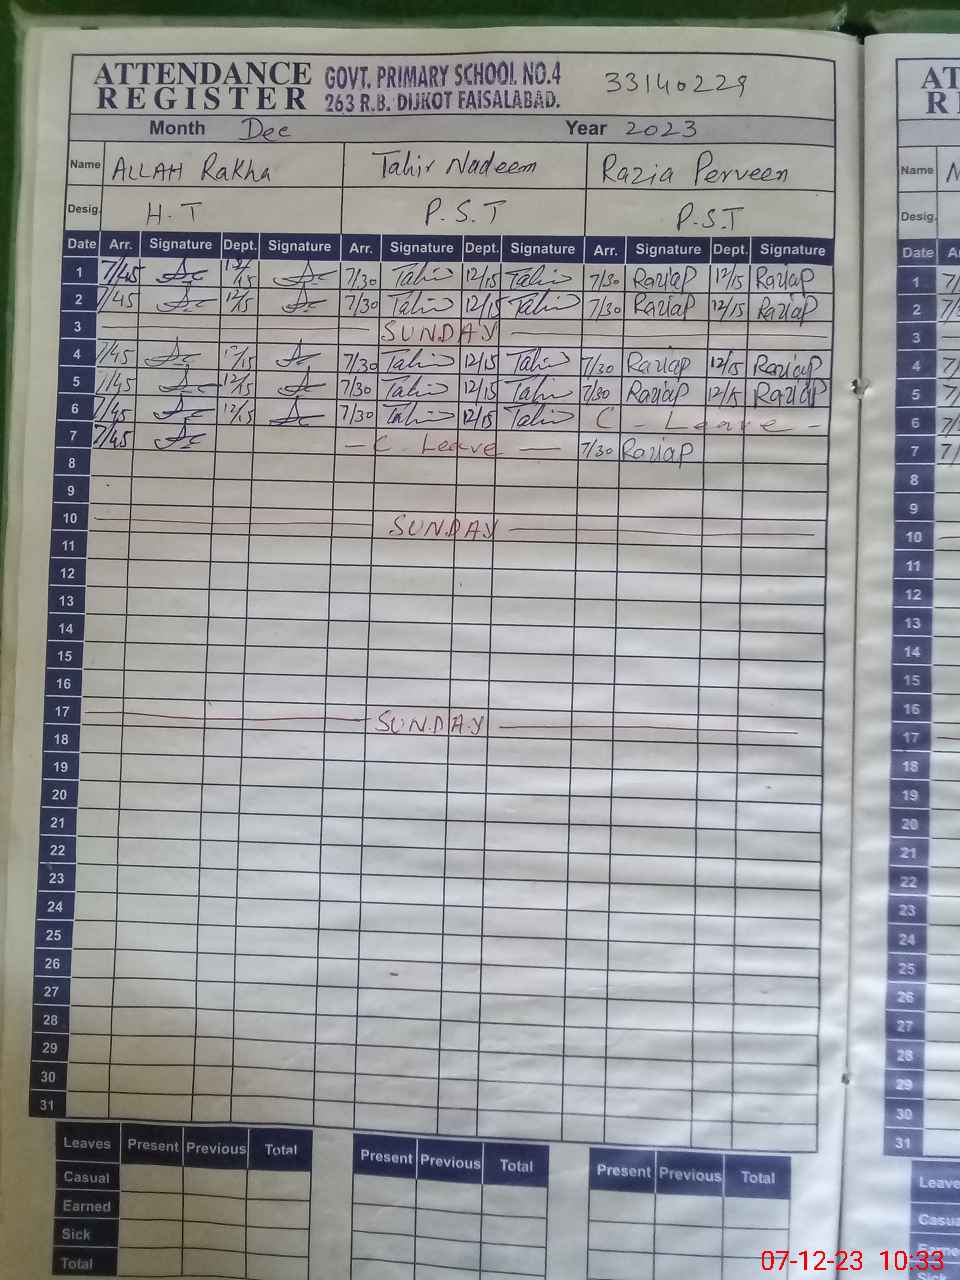 ATTENDANCE REGISTER GOVT. PRIMARY SCHOOL NO.4 263 R.B. DIJKOT FAISALABAD. 33140229
Month Dec Year 2023
Name ALLAH Rakha Tahir Nadeem Razia Perveen
Desig. H.T P.S.T P.S.T
Date Arr. Signature Dept. Signature Arr. Signature Dept. Signature Arr. Signature Dept. Signature
1 7/45 7/30 Tahir 12/15 Tahir 7/30 RaziaP 12/15 RaziaP
2 7/45 12/15 7/30 Tahir 12/15 Tahir 7/30 RaziaP 12/15 RaziaP
3 SUNDAY
4 7/45 12/15 7/30 Tahir 12/15 Tahir 7/30 RaziaP 12/15 RaziaP
5 7/45 12/15 7/30 Tahir 12/15 Tahir 7/30 RaziaP 12/15 RaziaP
6 7/45 12/15 7/30 Tahir 12/15 Tahir C - Leave -
7 7/45 - C Leave - 7/30 RaziaP
8
9
10 SUNDAY
11
12
13
14
15
16
17 SUNDAY
18
19
20
21
22
23
24
25
26
27
28
29
30
31
Leaves Present Previous Total Present Previous Total Present Previous Total
Casual
Earned
Sick
Total
AT
R
Name
Desig.
Date
1
2
3
4
5
6
7
8
9
10
11
12
13
14
15
16
17
18
19
20
21
22
23
24
25
26
27
28
29
30
31
07-12-23 10:33